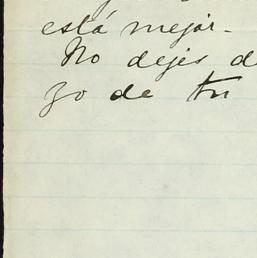 está mejor.
No dejes d
zo de tu